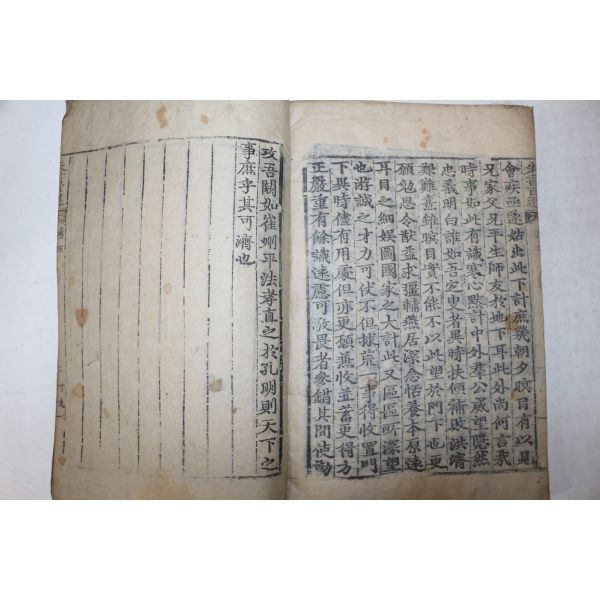 會疾亟遂始出此下計庶幾朝夕瞑目有以見
兄家父兄平生師友於地下耳此外尚何言哉
時事如此有識寒心默計中外羣公威望隱然
忠義明白誰如吾定叟者異時扶傾補敗洪濟
艱難熹雖瞑目實不能不以此望於門下也更
願勉思令猷益求彊輔燕居深念恬養本原遠
耳目之細娛圖國家之大計此又區區所深望
也游誠之才力可伏不但捄荒一事得收置門
下異時儘有用處但亦更願兼收並蓄更得方
正嚴重有餘識遠慮可敬畏者參錯其間使勤
攻吾闕如崔州平法孝直之於孔明則天下之
事庶乎其可濟也